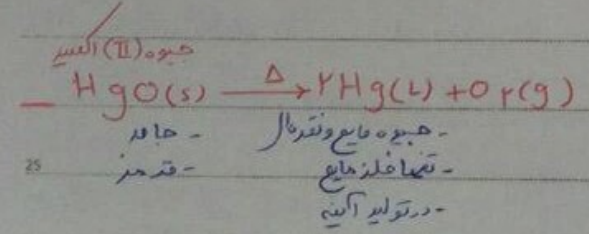 جیوه (II) اکسید
_ HgO(s) —Δ→ ۲Hg(L) + O۲(g)
- جامد
- قرمز
- جیوه مایع و نقره‌ای
- تنها فلز مایع
- در تولید آینه
25